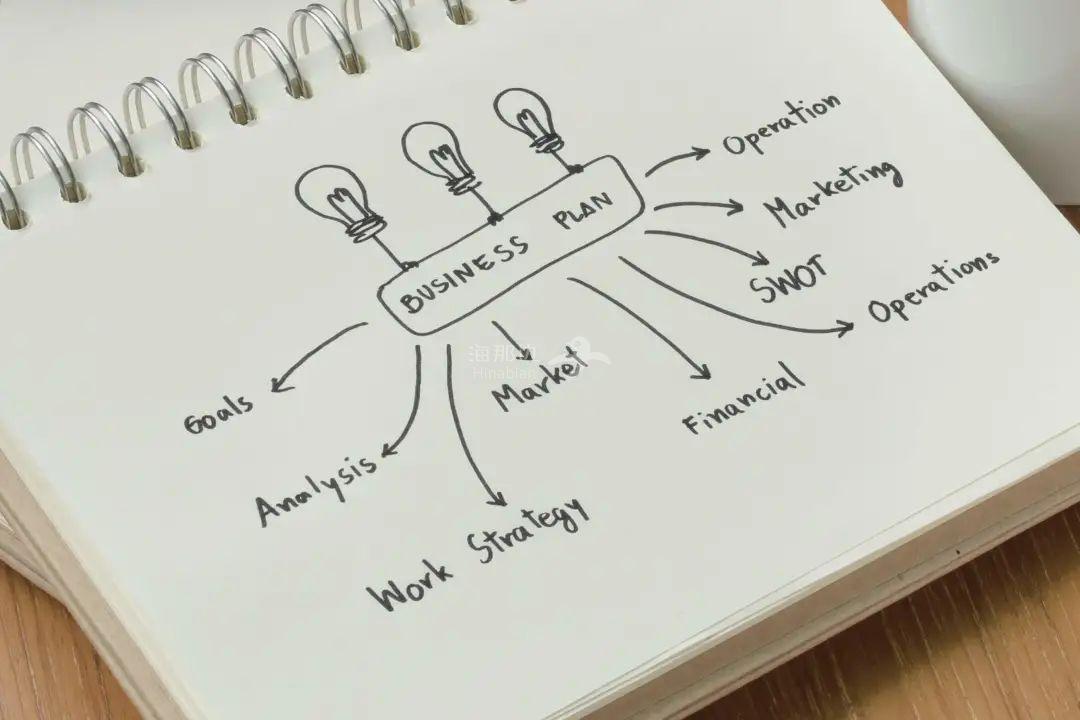 Operation
Marketing
BUSINESS PLAN
SWOT
Operations
Goals
Market
Financial
Analysis
Work Strategy
Hinabian